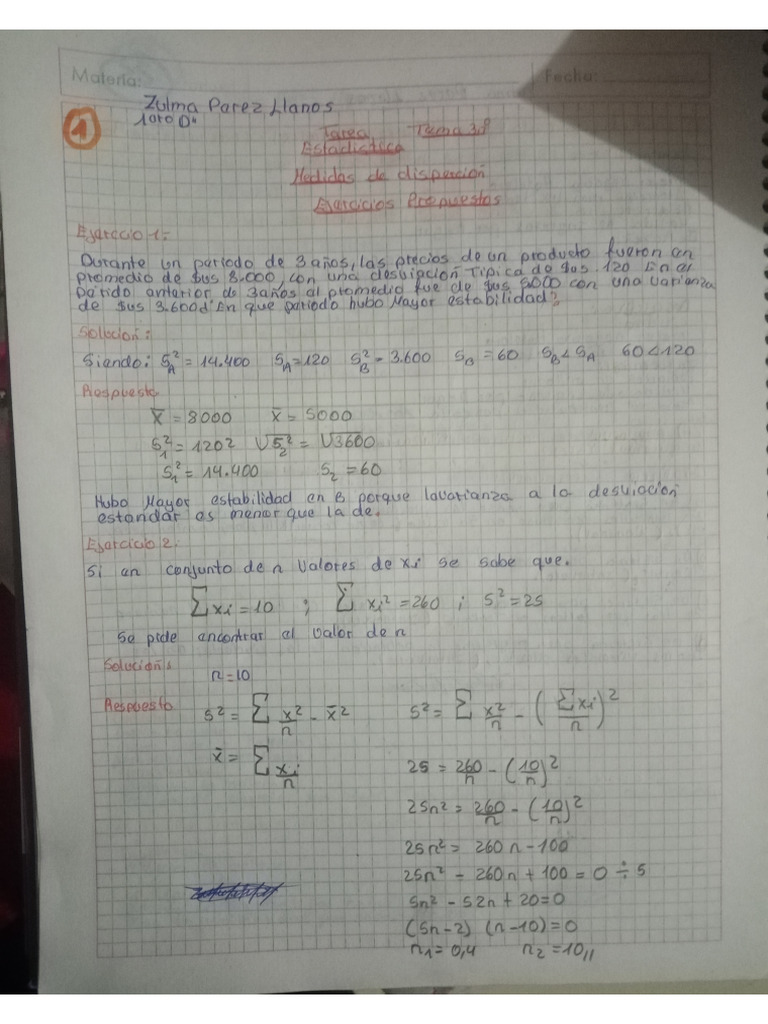 Materia: Fecha:
1
Zulma Parez Llanos
1oro D"
Tarea Tema 3
Estadistica
Medidas de disperción
Ejercicios Propuestos
Ejercicio 1:
Durante un periodo de 3 años, las precios de un producto fueron en
promedio de $us 8.000, con una desviación Tipica de $us 120 En el
patido anterior de 3años al promedio fue de $us 5000 con una varianza
de $us 3.600 En que periodo hubo Mayor estabilidad?
Solución:
Siendo: S²A = 14.400 SA = 120 S²B = 3.600 SB = 60 SB < SA 60 < 120
Respuesto
x̄ = 8000 x̄ = 5000
S²₁ = 120² √S²₂ = √3600
S²₁ = 14.400 S₂ = 60
Hubo Mayor estabilidad en B porque lavarianza a la desviación
estandar as menor que la de.
Ejercicio 2:
Si an conjunto de n Valores de xi se sabe que.
∑xi = 10 ; ∑xi² = 260 ; S² = 25
Se pide ancontrar al valor de n
Solución:
n = 10
Respuesto
S² = ∑ x²/n - x̄² S² = ∑ x²/n - (∑xi/n)²
x̄ = ∑ xi/n 25 = 260/n - (10/n)²
25n² = 260/n - (10/n)²
25n² = 260n - 100
25n² - 260n + 100 = 0 ÷ 5
5n² - 52n + 20 = 0
(5n-2) (n-10) = 0
n₁ = 0,4 n₂ = 10,,